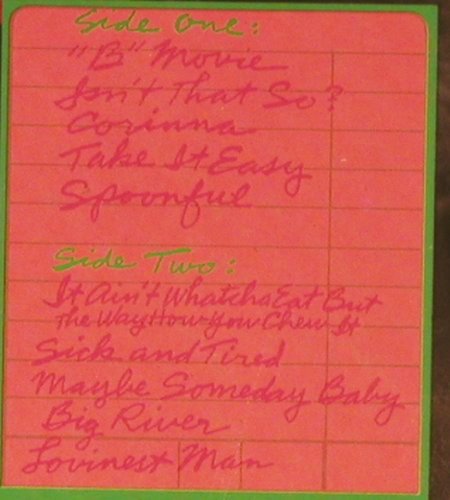 Side One:
"B" Movie
Isn't That So?
Corinna
Take It Easy
Spoonful
Side Two:
It Ain't Whatcha Eat But
The Way How You Chew It
Sick and Tired
Maybe Someday Baby
Big River
Lovinest Man